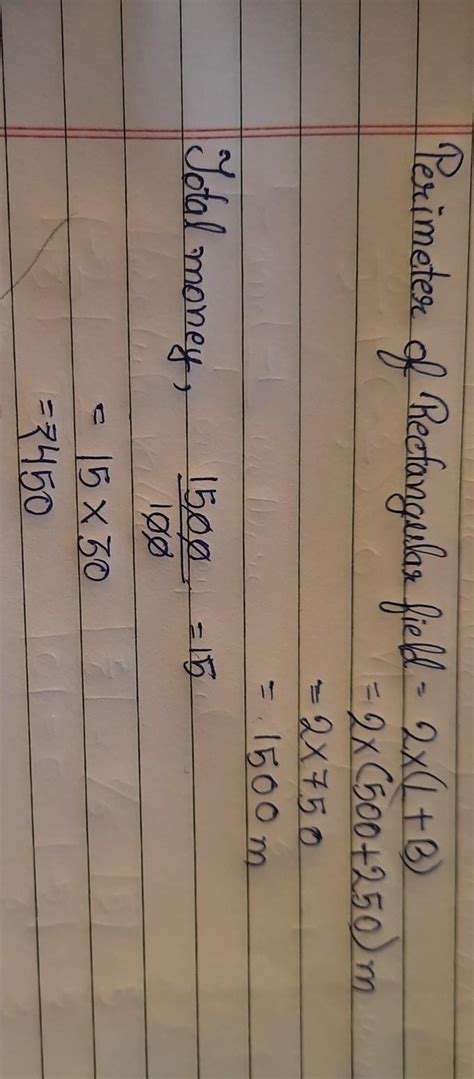 Perimeter of Rectangular field = 2×(L+B)
= 2×(500+250)m
= 2×750
= 1500 m
Total money, 1500/100 = 15
= 15 × 30
= ₹450